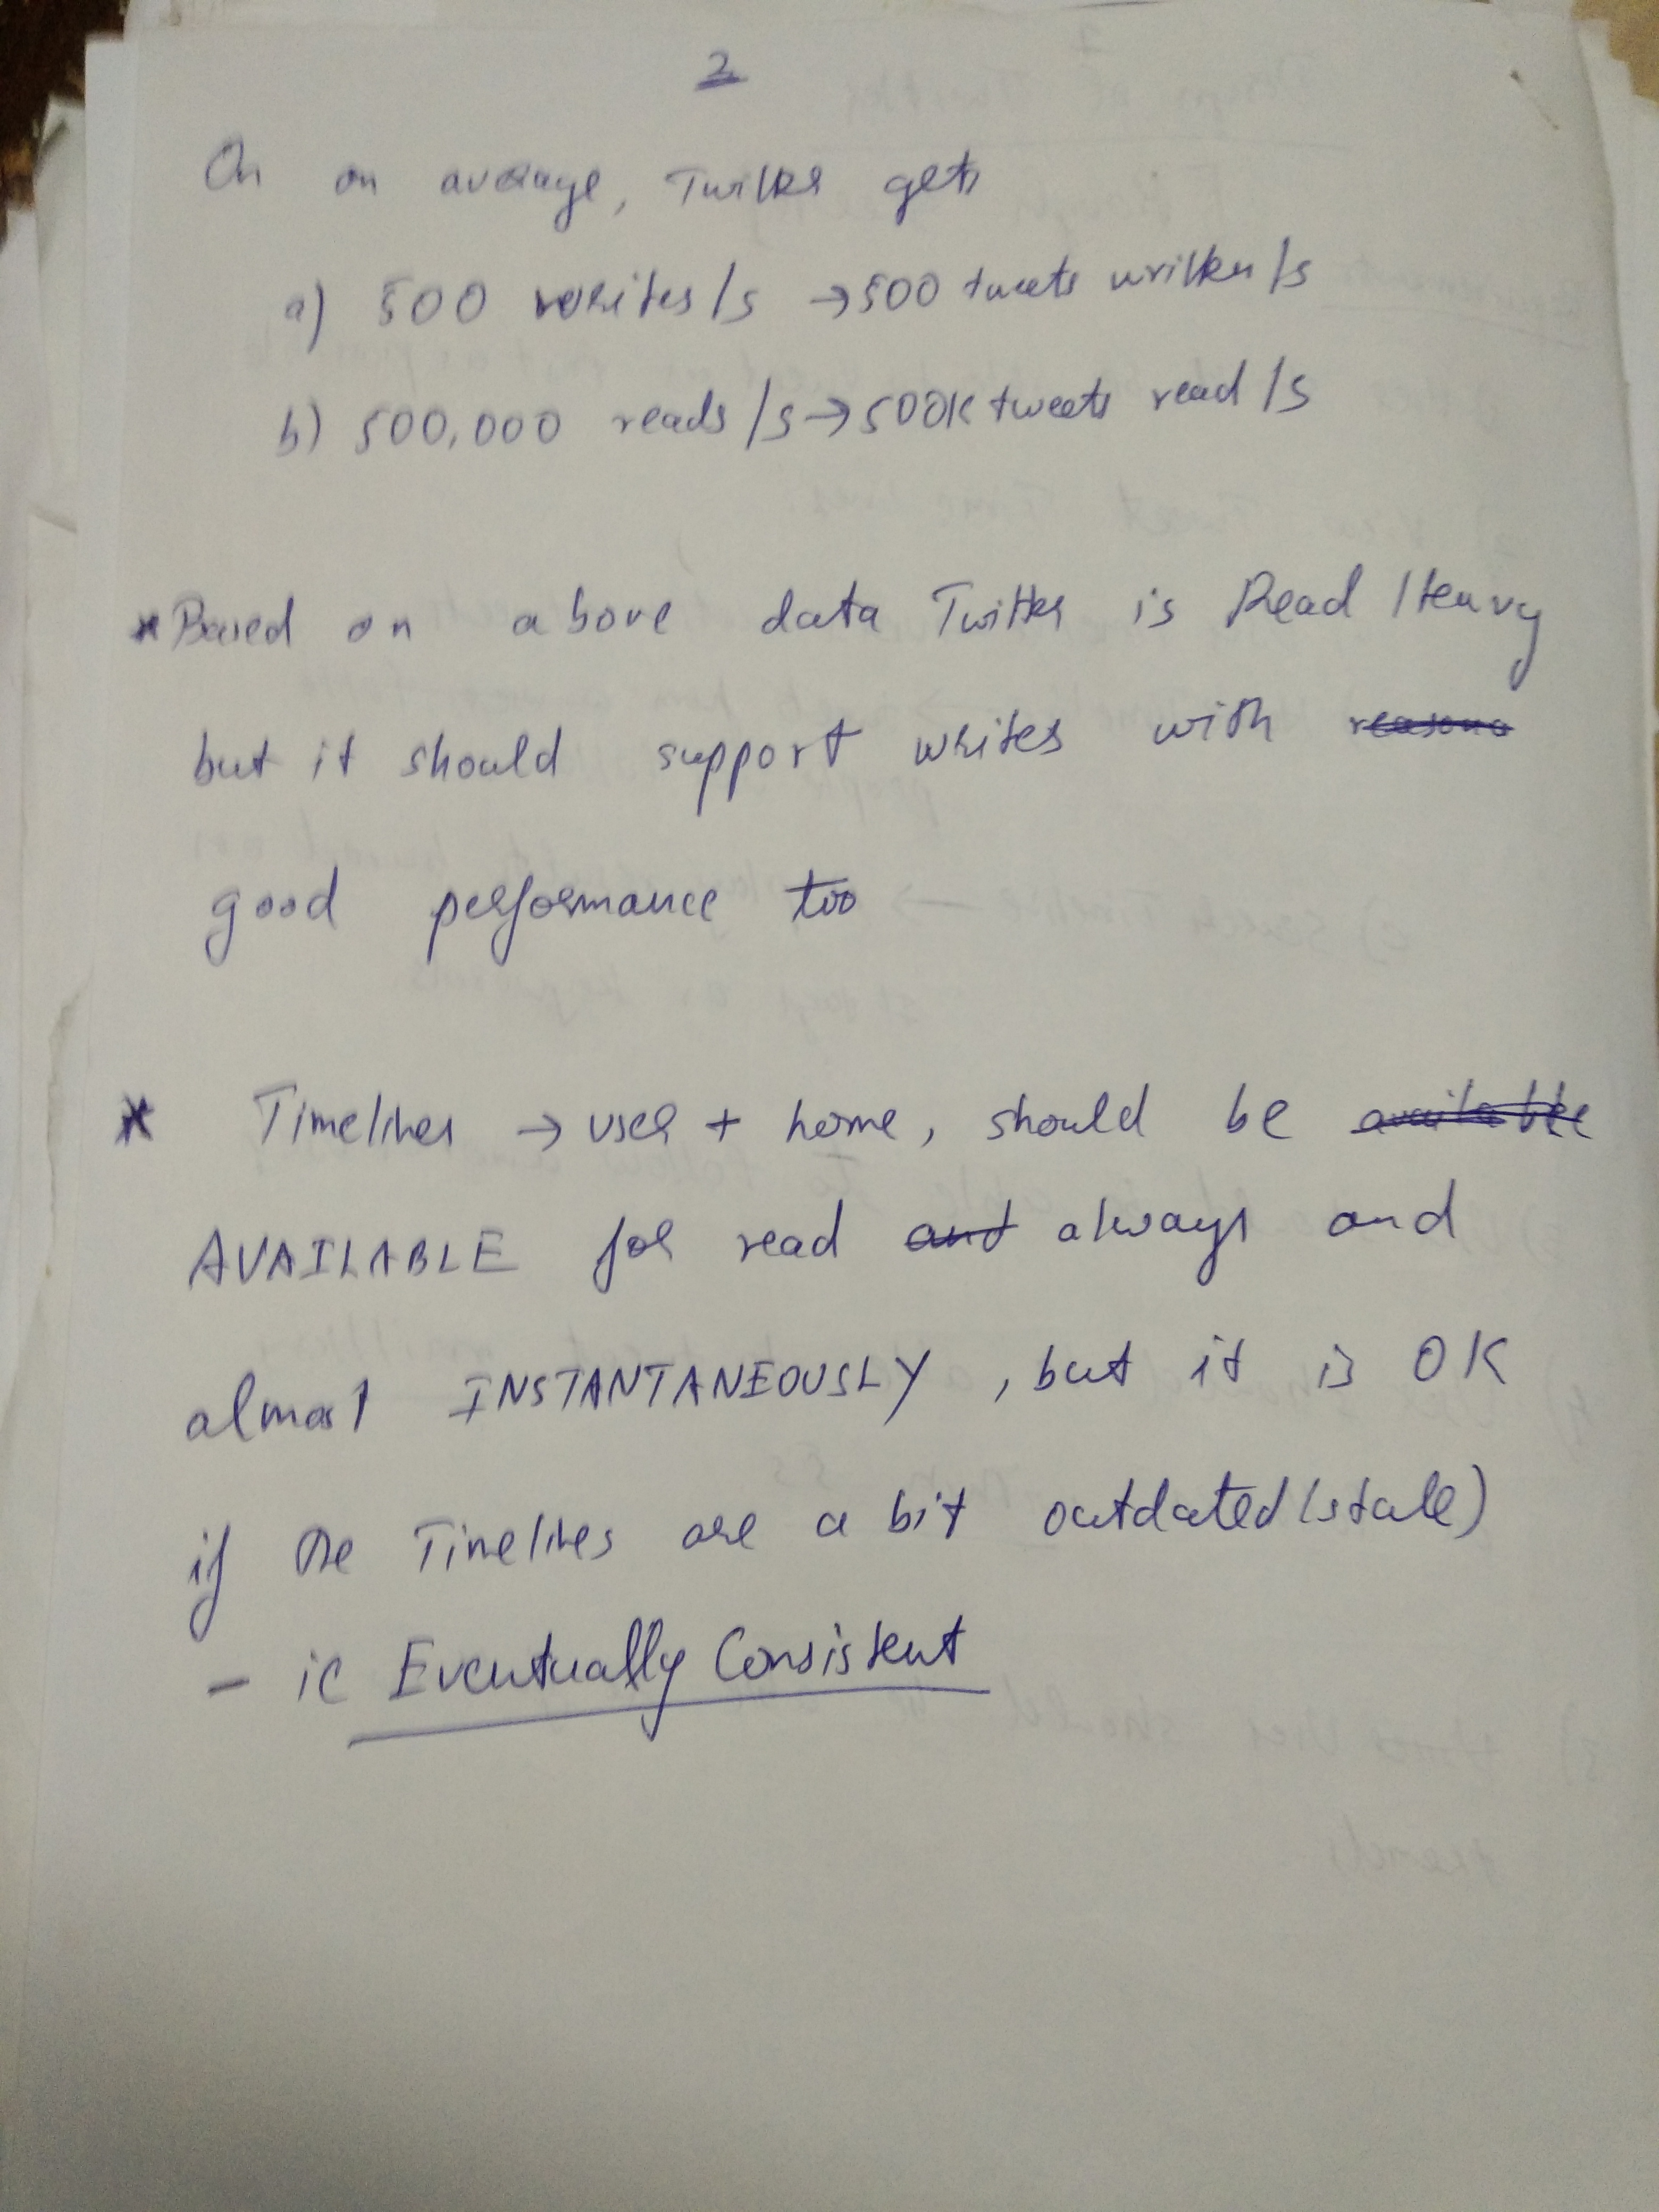 2
On an average, Twitter gets
a) 500 writes/s → 500 tweets written/s
b) 500,000 reads/s → 500K tweets read/s
* Based on above data Twitter is Read Heavy
but it should support writes with reasona
good performance too
* Timelines → user + home, should be available
AVAILABLE for read and always and
almost INSTANTANEOUSLY, but it is OK
if the Timelines are a bit outdated (stale)
- ie Eventually Consistent